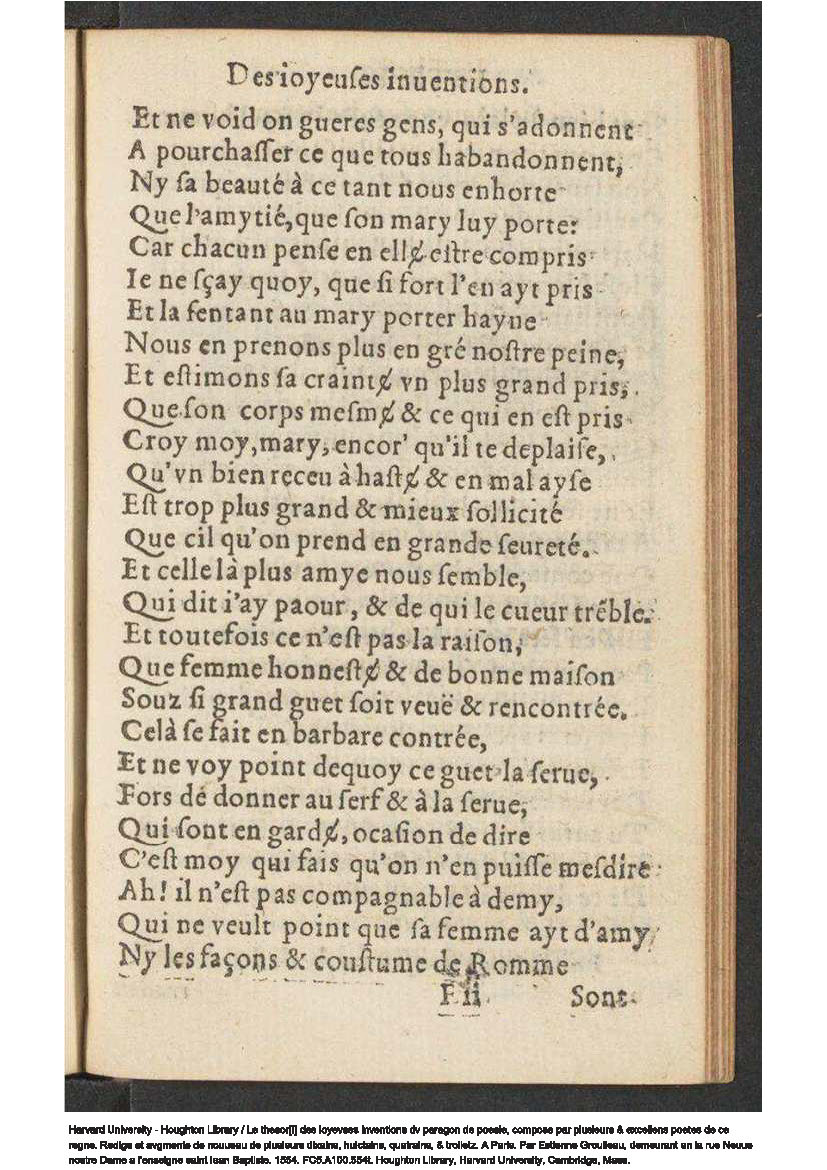 Des ioyeuſes inuentions.
Et ne void on gueres gens, qui s'adonnent
A pourchaſſer ce que tous habandonnent,
Ny ſa beauté à ce tant nous enhorte
Que l'amytié, que ſon mary luy porte:
Car chacun penſe en ellɇ eſtre compris
Ie ne ſçay quoy, que ſi fort l'en ayt pris
Et la ſentant au mary porter hayne
Nous en prenons plus en gré noſtre peine,
Et eſtimons ſa craintɇ vn plus grand pris,
Que ſon corps meſmɇ & ce qui en eſt pris
Croy moy, mary, encor' qu'il te deplaiſe,
Qu'vn bien receu à haſtɇ & en mal ayſe
Eſt trop plus grand & mieux ſollicité
Que cil qu'on prend en grande ſeureté.
Et celle là plus amye nous ſemble,
Qui dit i'ay paour, & de qui le cueur trẽble.
Et toutefois ce n'eſt pas la raiſon,
Que femme honneſtɇ & de bonne maiſon
Souz ſi grand guet ſoit veuë & rencontrée.
Celà ſe fait en barbare contrée,
Et ne voy point dequoy ce guet la ſerue,
Fors dé donner au ſerf & à la ſerue,
Qui ſont en gardɇ, ocaſion de dire
C'eſt moy qui fais qu'on n'en puiſſe meſdire
Ah! il n'eſt pas compagnable à demy,
Qui ne veult point que ſa femme ayt d'amy
Ny les façons & couſtume de Romme
F ii Sont
Harvard University - Houghton Library / Le thesor[i] des ioyevses inventions dv paragon de poesie, compose par plusieurs & excellens poetes de ce
regne. Redige et avgmente de nouueau de plusieurs dixains, huictains, quatrains, & trolletz. A Paris. Par Estienne Groulleau, demeurant en la rue Neuue
nostre Dame a l'enseigne saint Iean Baptiste. 1554. FC5.A100.554t. Houghton Library, Harvard University, Cambridge, Mass.